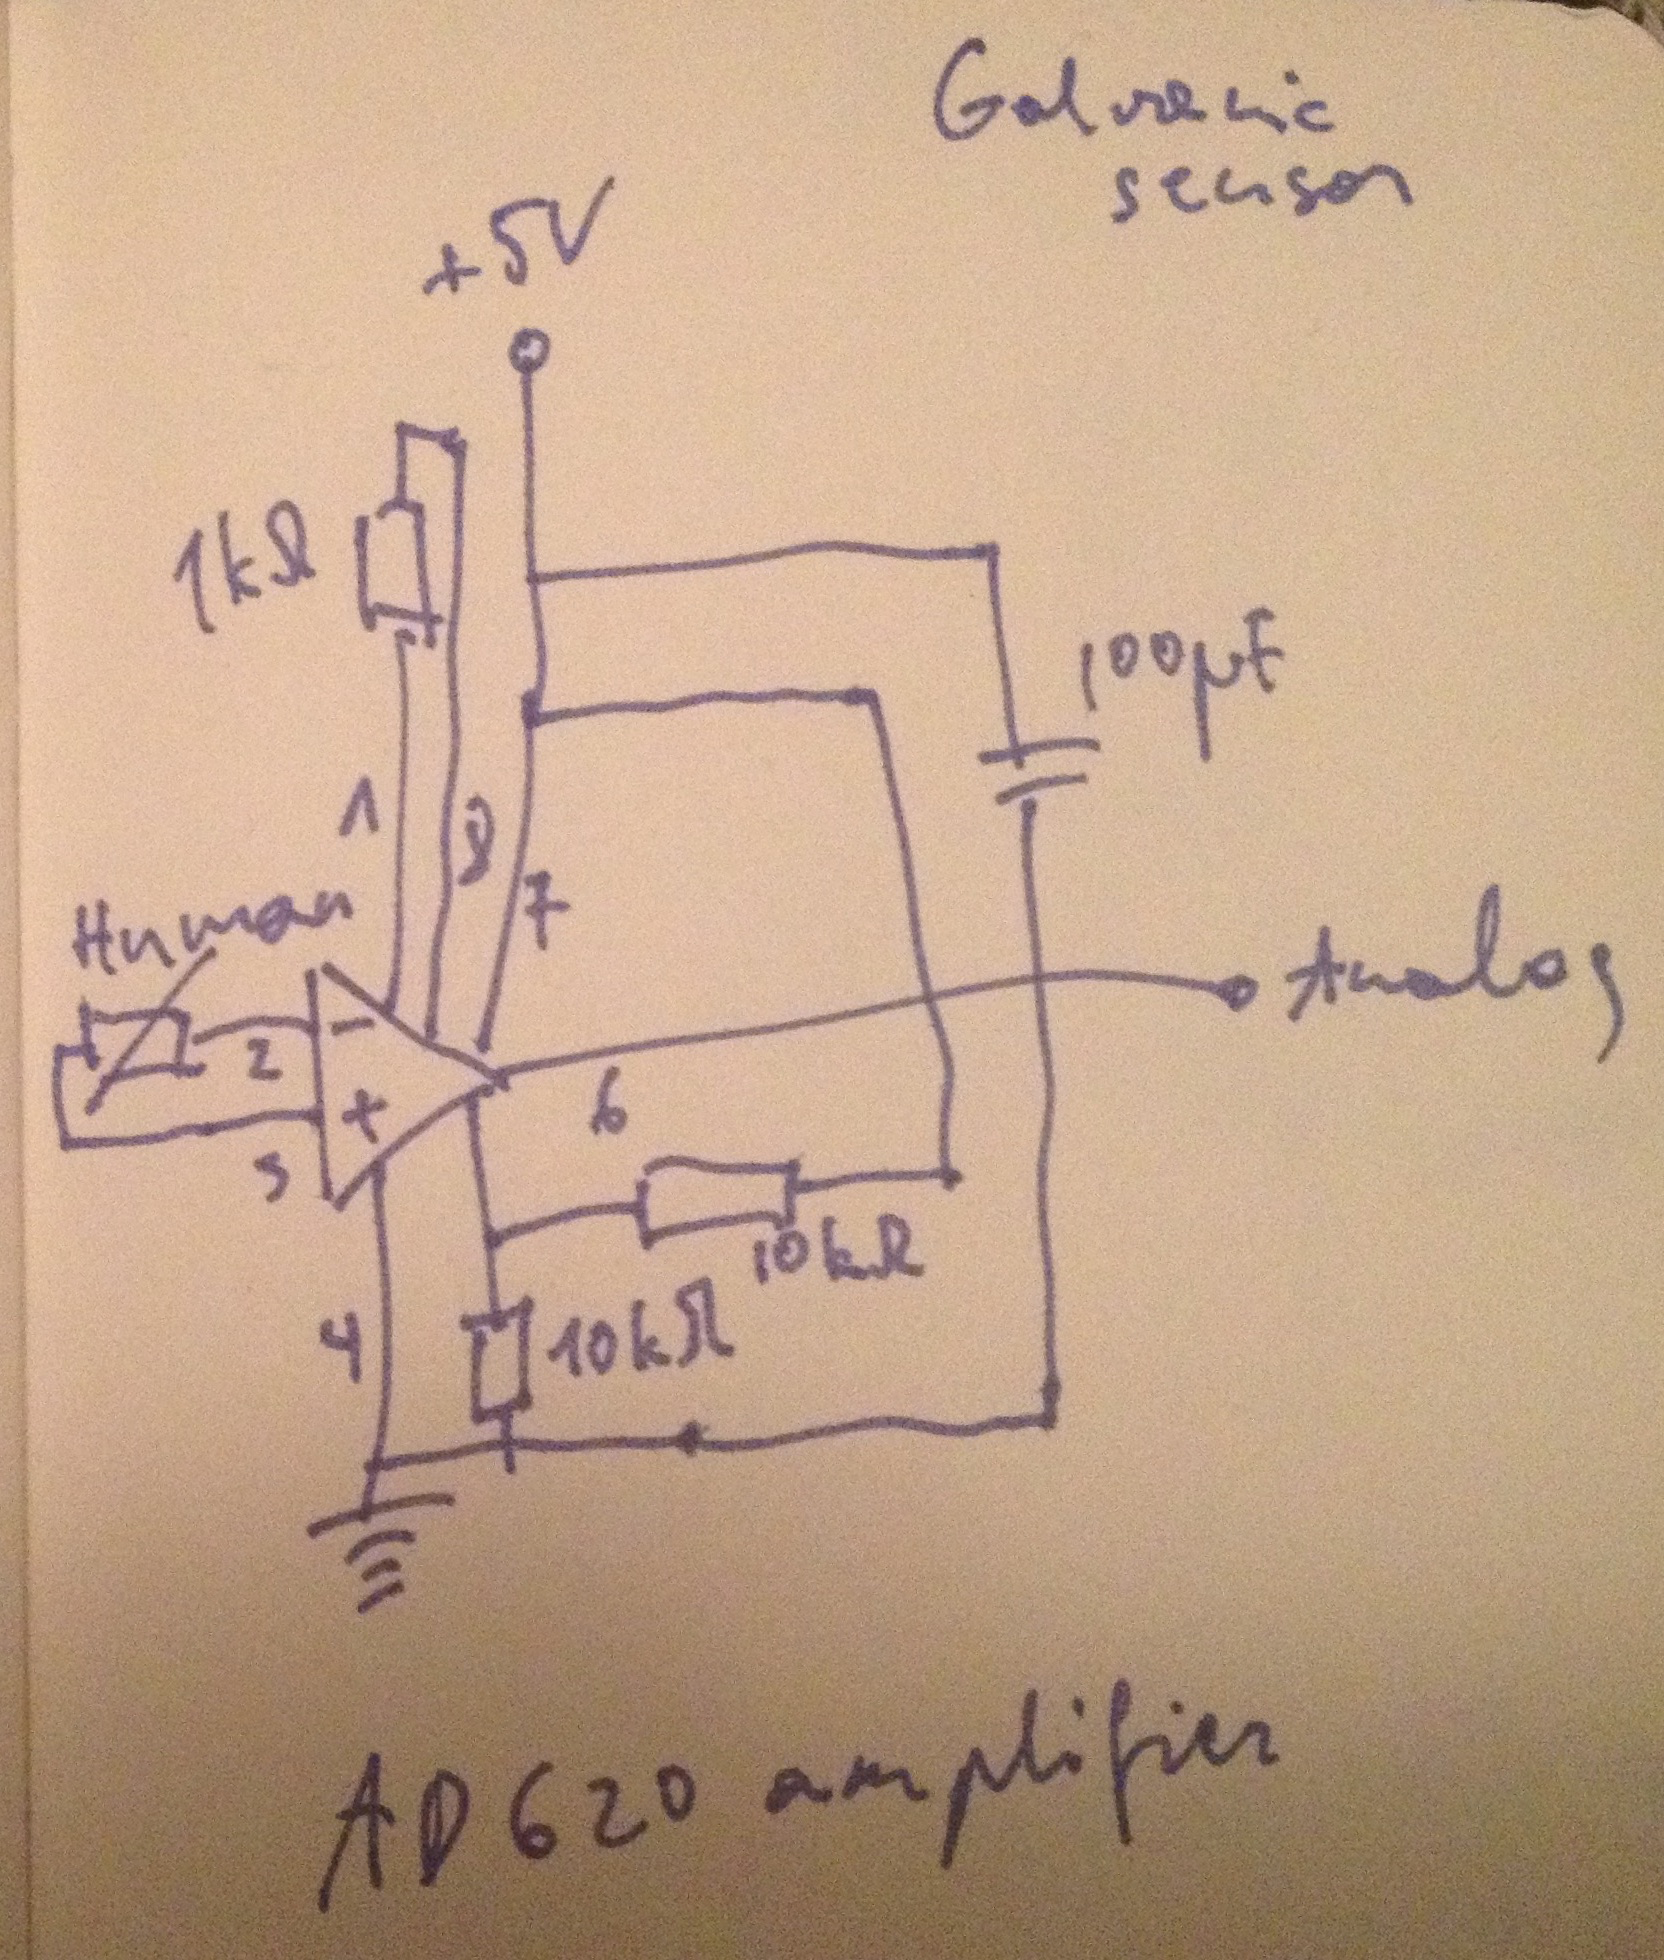 Galvanic
sensor
+5V
1kΩ
100µF
1
8
7
Human
Analog
-
2
+
3
6
10kΩ
10kΩ
4
AD620 amplifier